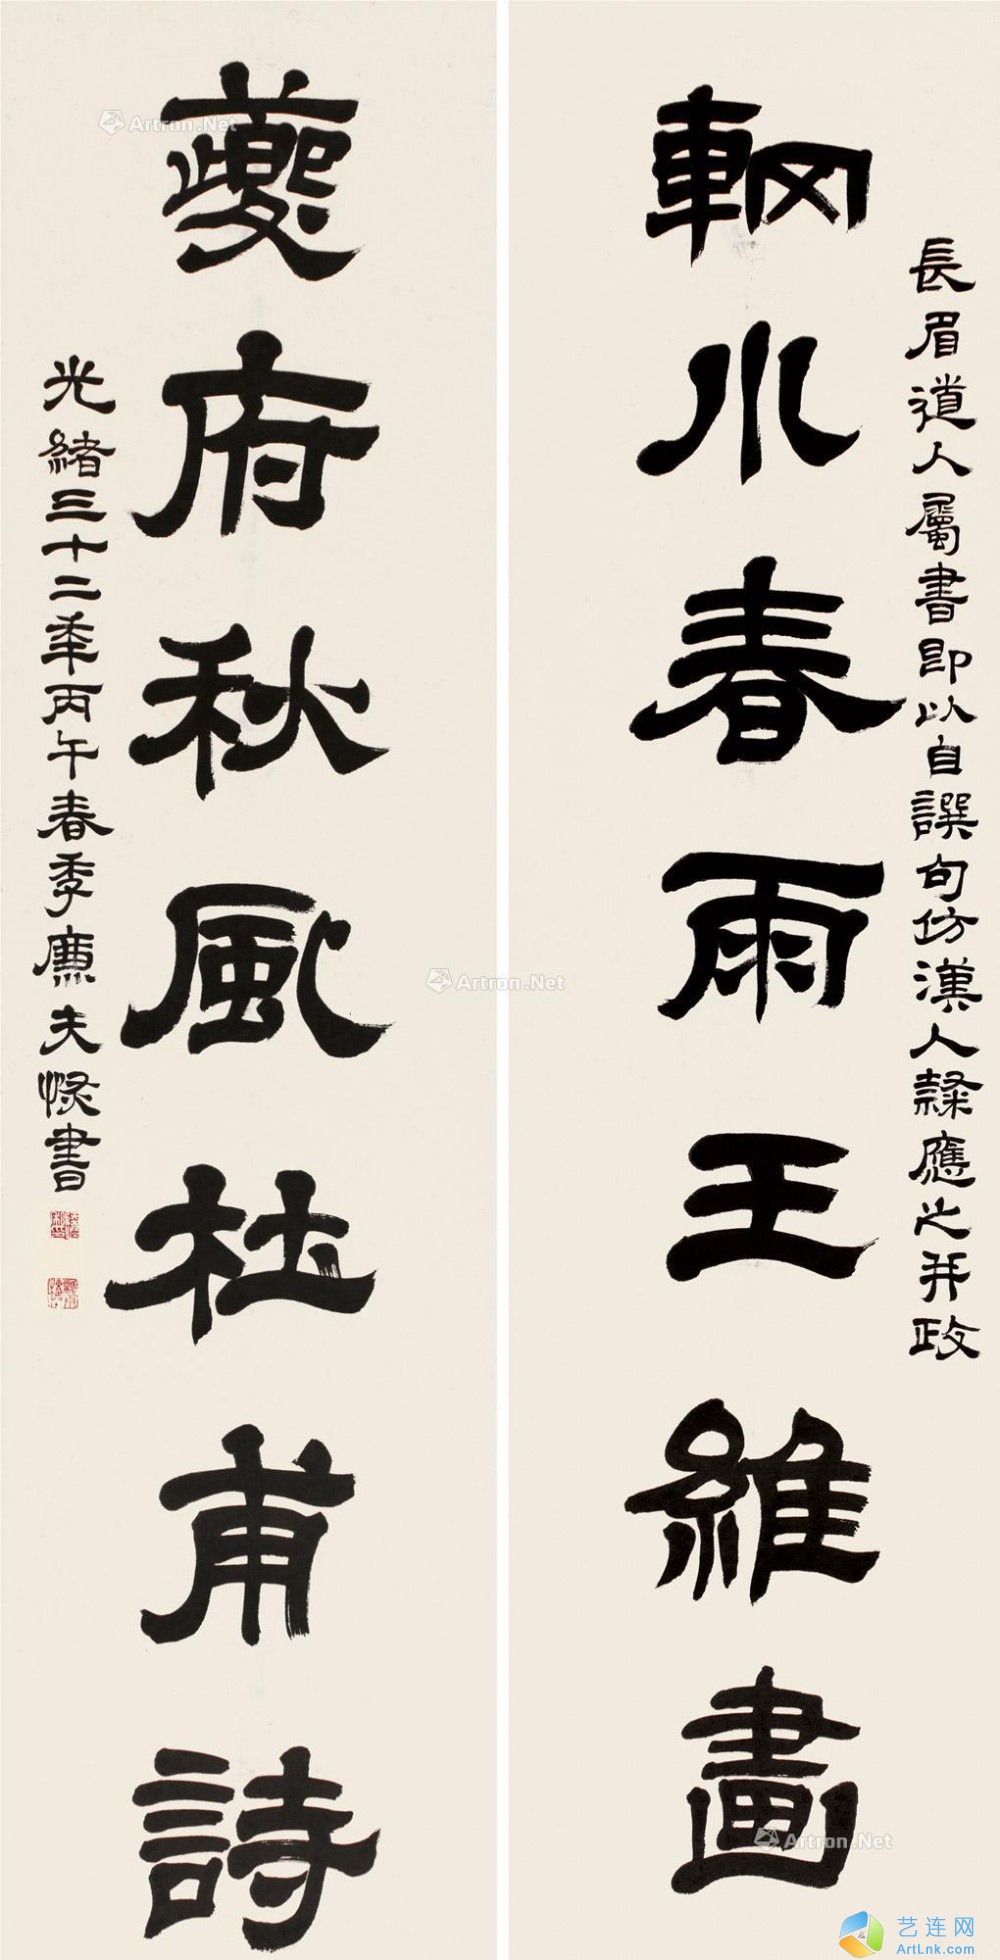 長眉道人屬書即以自譔句仿漢人隸應之并政
輞川春雨王維畫
夔府秋風杜甫詩
光緒三十二年丙午春季廉夫恢書
Artron.Net
Artron.Net
Artron.Net
艺连网
ArtLnk.com